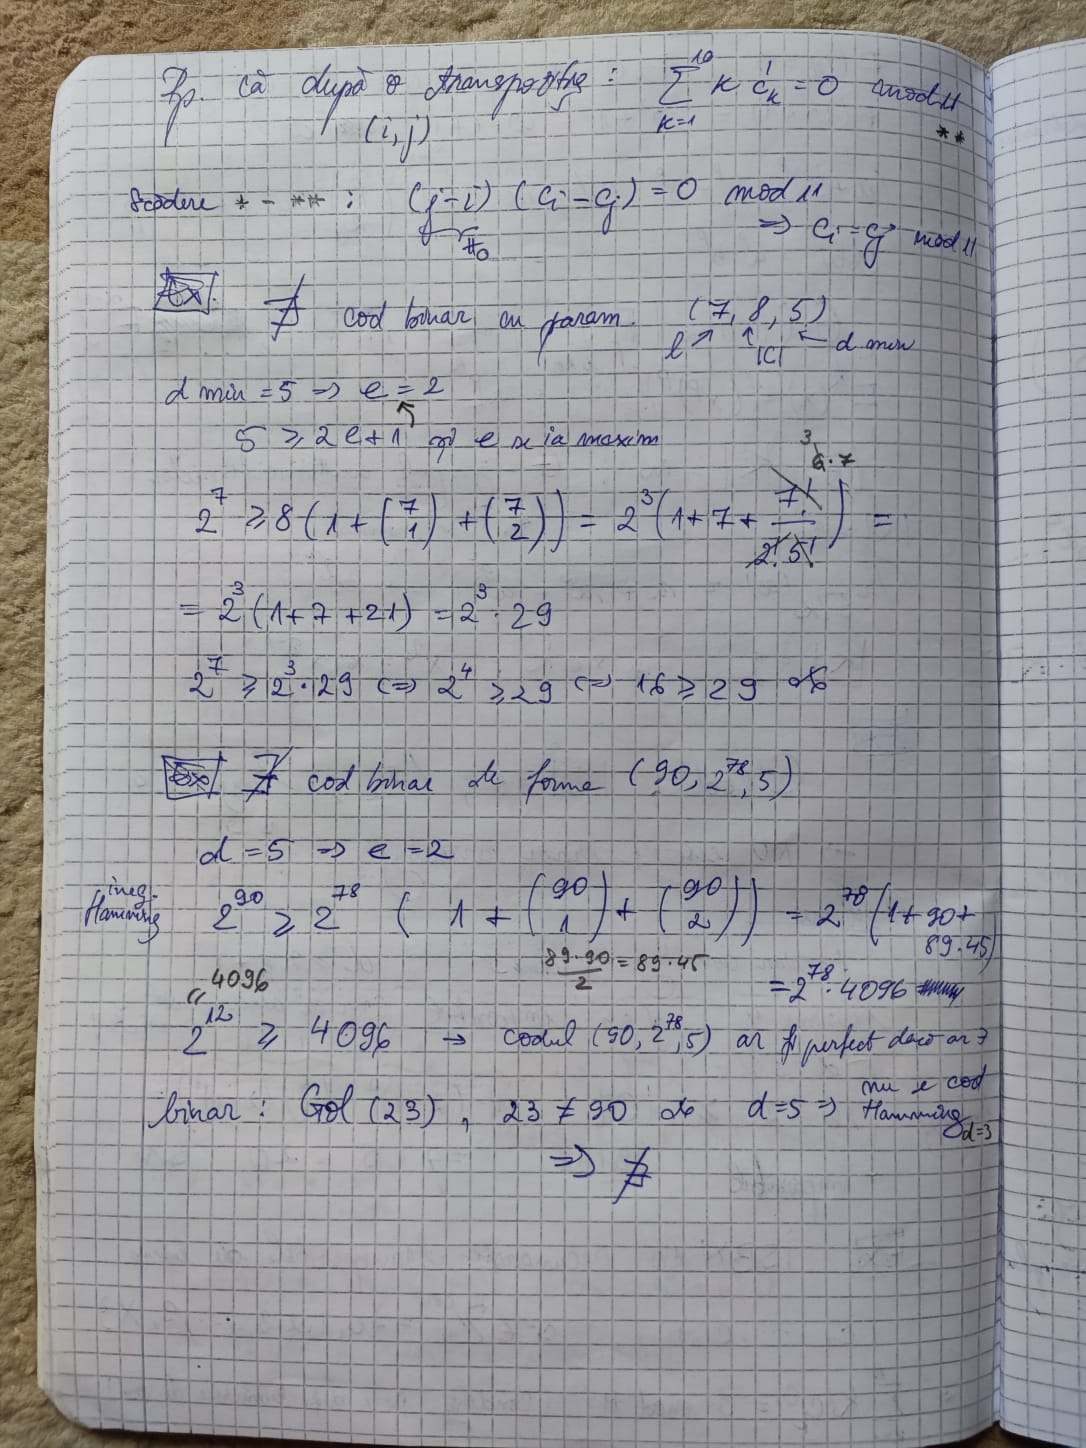 Pp. că după o transpoziție : ∑_{k=1}^{10} k c'_k = 0 mod 11
(i,j) **
Scădere * - ** : (j-i) (ci - cj) = 0 mod 11
≠0 => ci = cj mod 11
Ex. ∄ cod binar cu param. (7, 8, 5)
l |C| d min
d min = 5 => e = 2
5 ≥ 2e+1 și e se ia maxim
2^7 ≥ 8 (1 + (7 1) + (7 2)) = 2^3 (1+7+ 7!/(2! 5!)) =
3 6·7
= 2^3 (1+7+21) = 2^3 · 29
2^7 ≥ 2^3 · 29 <=> 2^4 ≥ 29 <=> 16 ≥ 29
Ex ∄ cod binar de forma (90, 2^78, 5)
d = 5 => e = 2
ineg. Hamming 2^90 ≥ 2^78 ( 1 + (90 1) + (90 2)) = 2^78 (1+90+ 89·45)
89·90/2 = 89·45
= 2^78 · 4096
4096
2^12 ≥ 4096 → codul (90, 2^78, 5) ar fi perfect dacă ar ∃
binar : Gol (23) , 23 ≠ 90 d=5 => nu e cod Hamming d=3
=> ∄